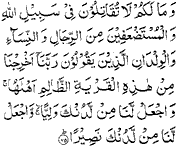 وَمَا لَكُمْ لَا تُقَاتِلُوْنَ فِيْ سَبِيْلِ اللّٰهِ
وَالْمُسْتَضْعَفِيْنَ مِنَ الرِّجَالِ وَالنِّسَآءِ
وَالْوِلْدَانِ الَّذِيْنَ يَقُوْلُوْنَ رَبَّنَآ اَخْرِجْنَا
مِنْ هٰذِهِ الْقَرْيَةِ الظَّالِمِ اَهْلُهَا ۚ
وَاجْعَلْ لَّنَا مِنْ لَّدُنْكَ وَلِيًّا ۙ وَّاجْعَلْ
لَّنَا مِنْ لَّدُنْكَ نَصِيْرًا ۝٧٥